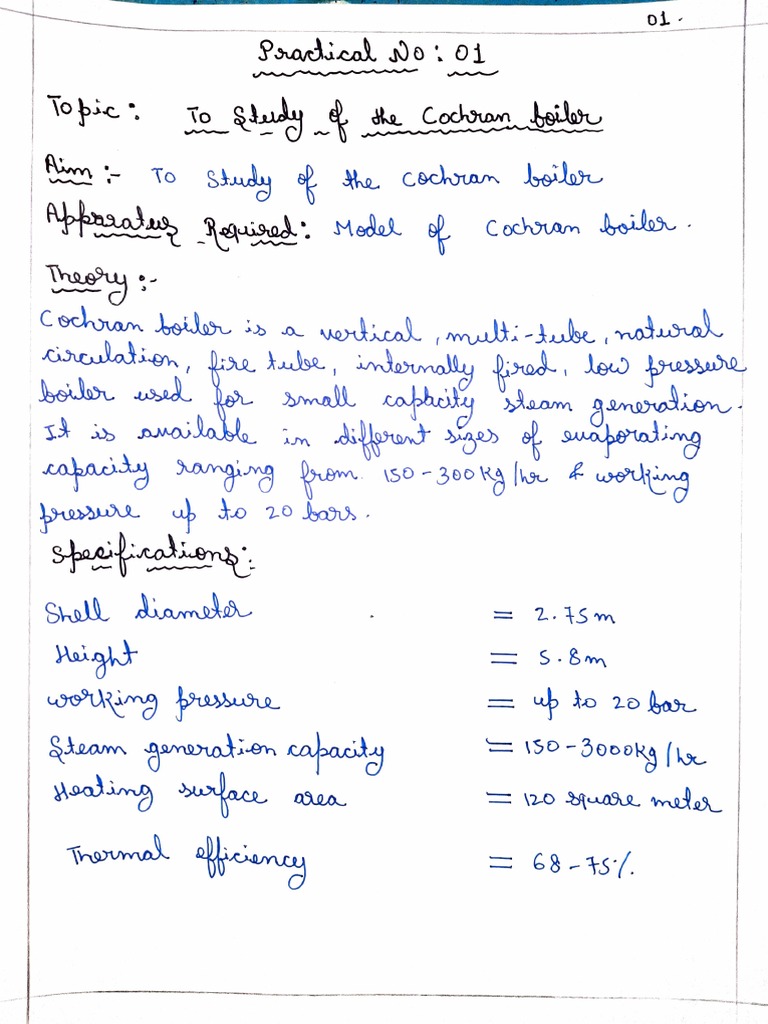 01.
Practical No: 01
Topic: To Study of the Cochran boiler
Aim :- To Study of the Cochran boiler
Apparatus Required: Model of Cochran boiler.
Theory :-
Cochran boiler is a vertical, multi-tube, natural
circulation, fire tube, internally fired, low pressure
boiler used for small capacity steam generation.
It is available in different sizes of evaporating
capacity ranging from 150-300kg/hr & working
pressure up to 20 bars.
Specifications:
Shell diameter = 2.75m
Height = 5.8m
working pressure = up to 20 bar
Steam generation capacity = 150-3000kg/hr
Heating surface area = 120 square meter
Thermal efficiency = 68-75%.